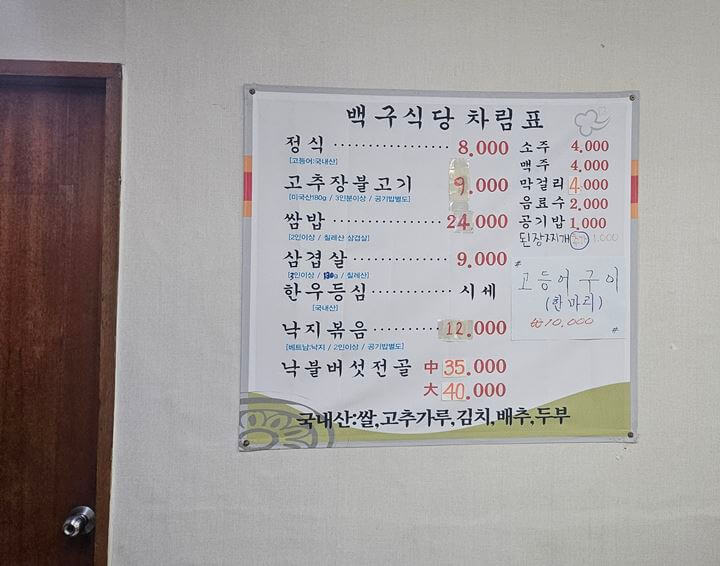 백구식당 차림표
정식 8.000
[고등어:국내산]
고추장불고기 9.000
[미국산180g / 3인분이상 / 공기밥별도]
쌈밥 24.000
[2인이상 / 칠레산 삼겹살]
삼겹살 9.000
[3인이상 / 180g / 칠레산]
한우등심 시세
[국내산]
낙지볶음 12.000
[베트남:낙지 / 2인이상 / 공기밥별도]
낙불버섯전골 中 35.000
大 40.000
소주 4.000
맥주 4.000
막걸리 4.000
음료수 2.000
공기밥 1.000
된장찌개 추가 1.000
" 고등어구이
(한마리)
₩10,000 "
국내산:쌀,고추가루,김치,배추,두부